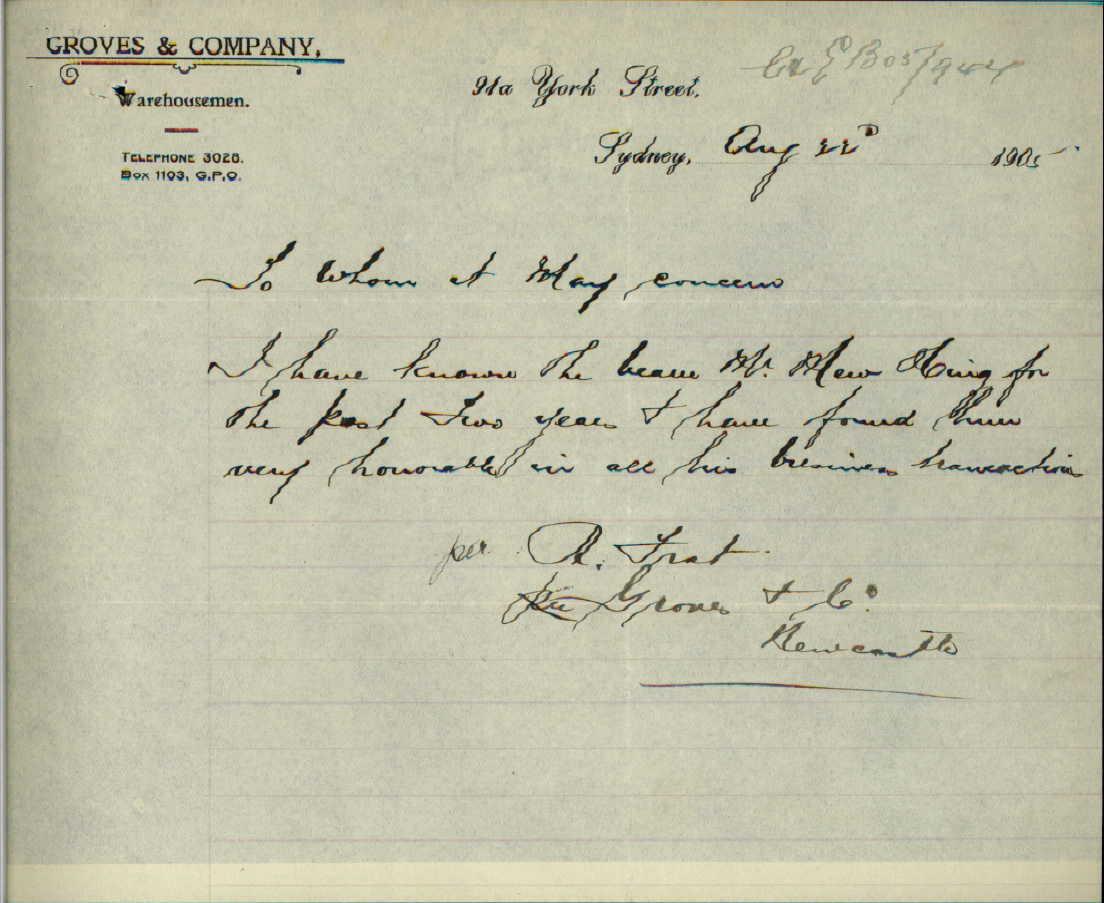 GROVES & COMPANY,
Warehousemen.
TELEPHONE 3028.
Box 1193, G.P.O.
91a York Street.
Sydney, Aug 22D 1905
To Whom it May concern
I have known the bearer Mr. Mew Hing for
the past two years & have found him
very honorable in all his business transaction
per A. Frat
Groves & Co.
Newcastle